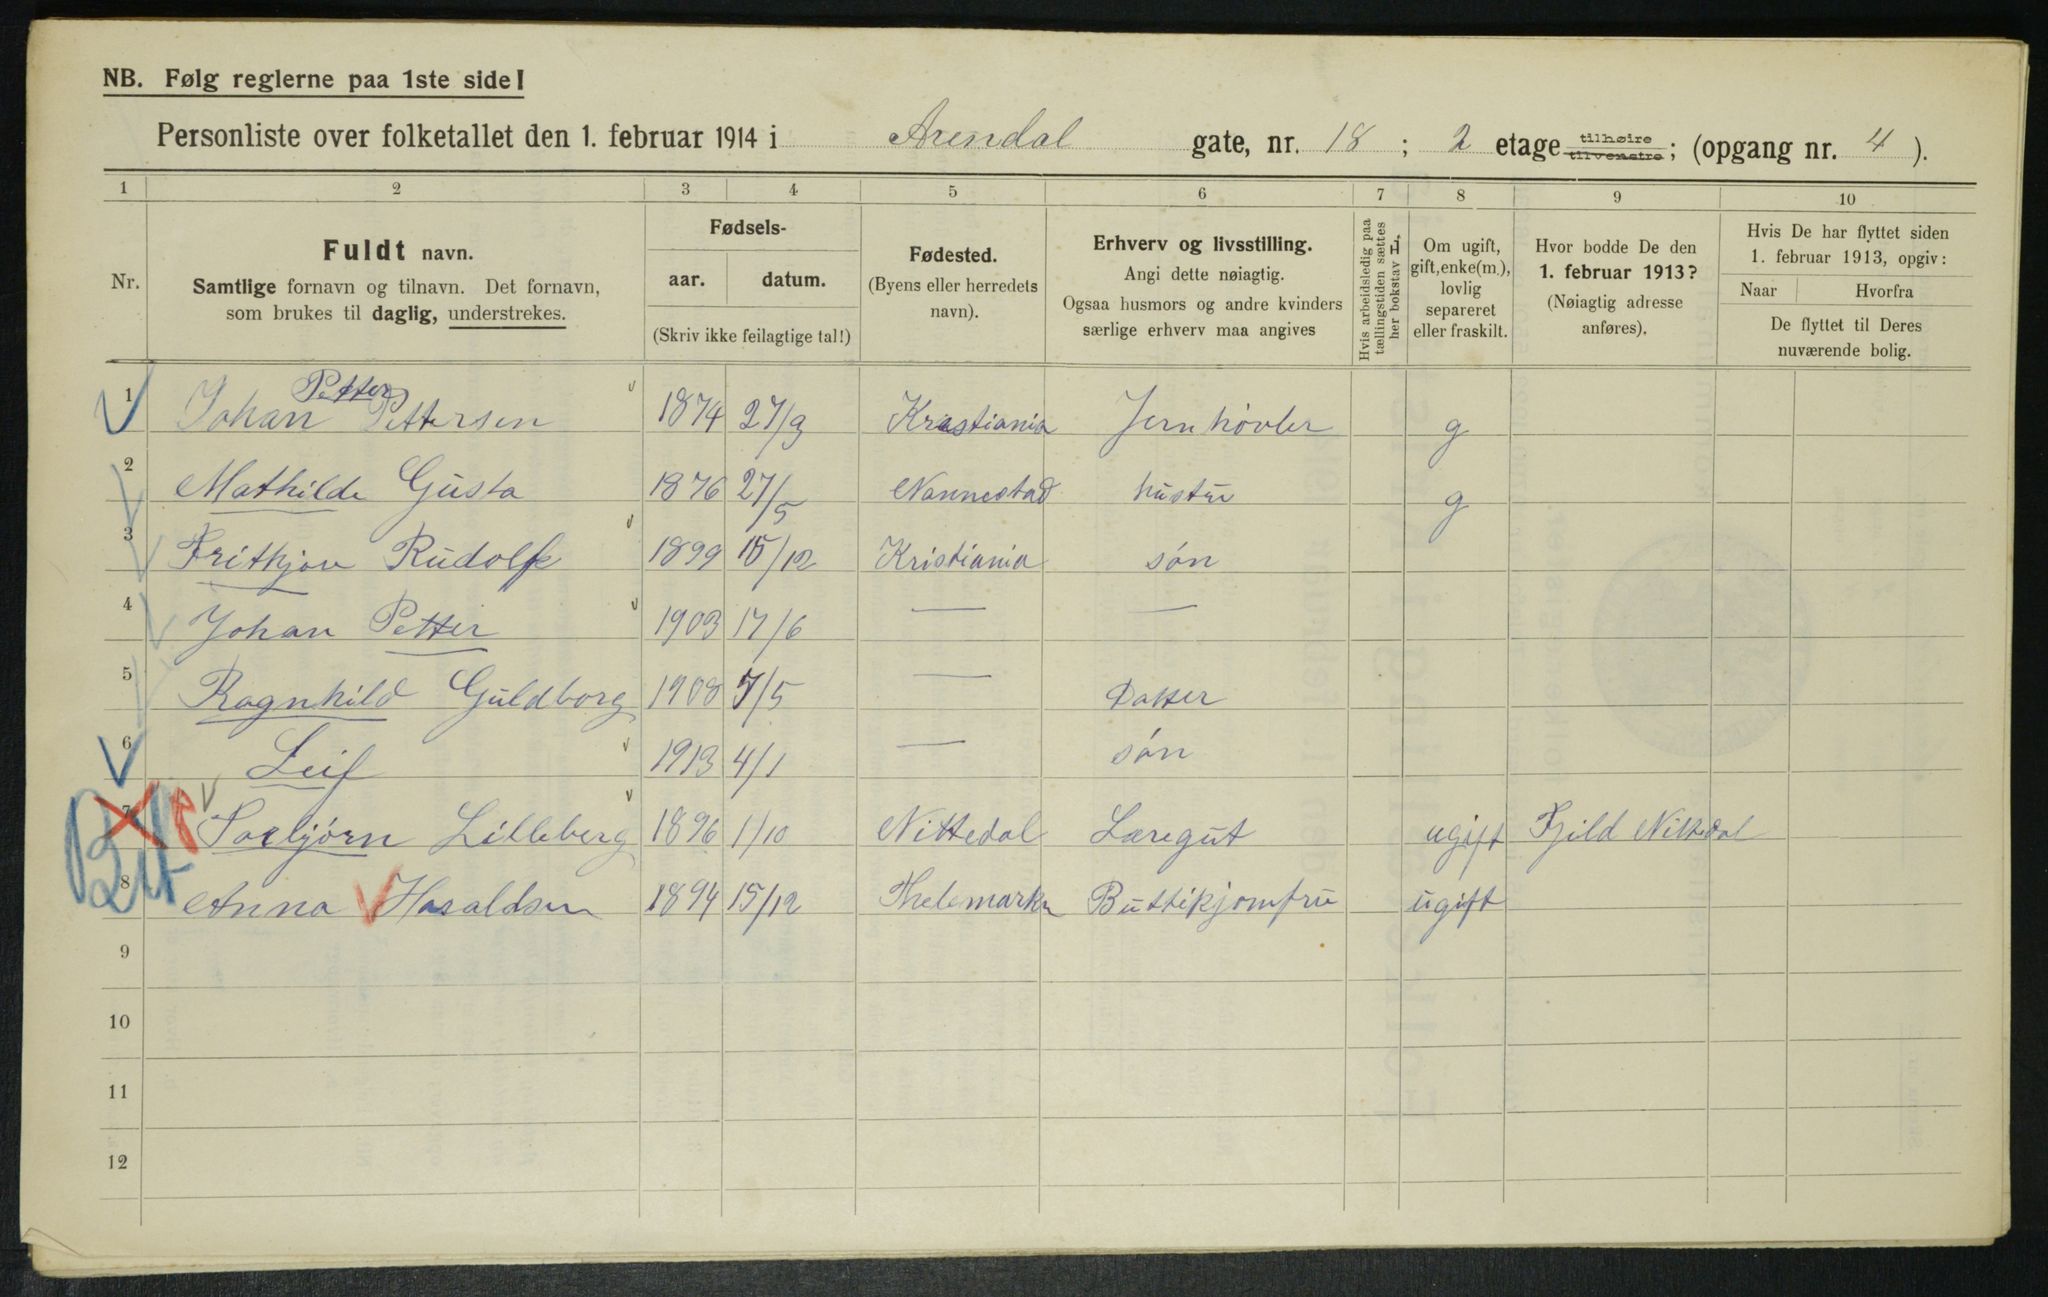 NB. Følg reglerne paa 1ste side!
Personliste over folketallet den 1. februar 1914 i Arendal gate, nr. 18 ; 2 etage tilhøire tilvenstre ; (opgang nr. 4 ).
1 2 3 4 5 6 7 8 9 10
Nr.
Fuldt navn.
Samtlige fornavn og tilnavn. Det fornavn,
som brukes til daglig, understrekes.
Fødsels-
aar. datum.
(Skriv ikke feilagtige tal!)
Fødested.
(Byens eller herredets
navn).
Erhverv og livsstilling.
Angi dette nøiagtig.
Ogsaa husmors og andre kvinders
særlige erhverv maa angives
Hvis arbeidsledig paa
tællingstiden sættes
her bokstav L.
Om ugift,
gift, enke(m.),
lovlig
separeret
eller fraskilt.
Hvor bodde De den
1. februar 1913?
(Nøiagtig adresse
anføres).
Hvis De har flyttet siden
1. februar 1913, opgiv:
Naar Hvorfra
De flyttet til Deres
nuværende bolig.
Petter
1 Johan Pettersen 1874 27/3 Kristiania Jernhøvler g
2 Mathilde Gusta 1876 27/5 Nannestad hustru g
3 Frithjov Rudolf 1899 15/12 Kristiania søn
4 Johan Petter 1903 17/6 — —
5 Ragnhild Guldborg 1908 7/5 — Datter
6 Leif 1913 4/1 — søn
7 Torbjørn Lilleberg 1896 1/10 Nittedal Læregut ugift Fjild Nittedal
8 Anna Haraldsen 1894 15/12 Thelemarken Buttikjomfru ugift
9
10
11
12